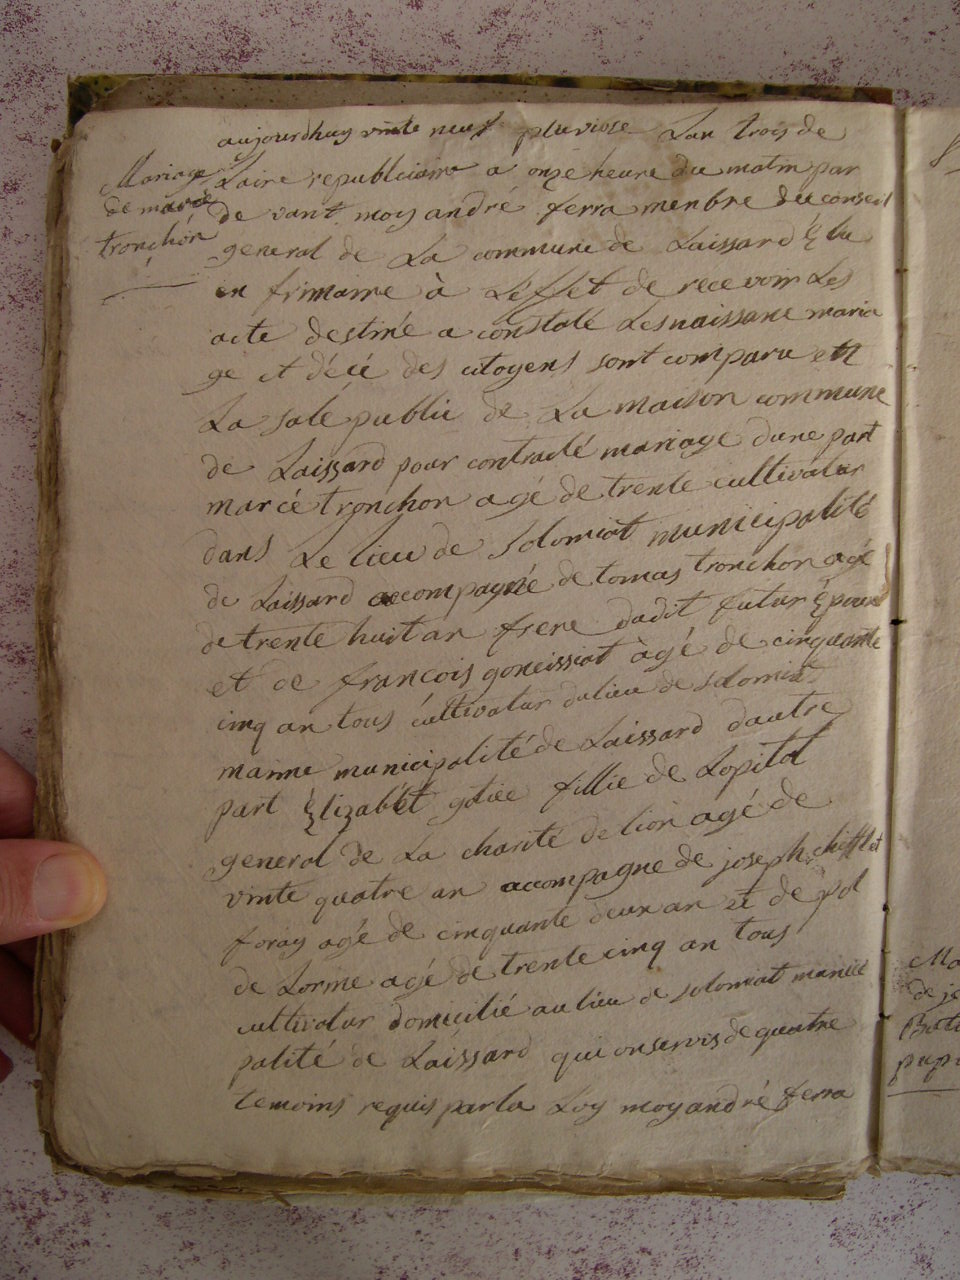 Mariage
de marcé
tronchon
aujourdhuy vinte neuf pluviose Lan trois de
Laire republiciaire a onze heure du matin par
de vant moy andré ferra menbre du conseil
general de La commune de Laissard Élu
en frimaire à Léffet de recevoir Les
acte destiné a constalé Les naissane maria
ge et décé des citoyens sont comparu en
La sale public de La maison commune
de Laissard pour contracté mariage dune part
marcé tronchon agé de trente cultivatur
dans Le lieu de Solomiat municipalité
de Laissard accompagné de tomas tronchon agé
de trente huit an frere dudit futur Époux
et de francois goneissiat àgé de cinquante
cinq an tous cultivatur du lieu de solomiat
maime municipalité de Laissard dautre
part Élizabét fillie de Lopital
general de La charité de lion agé de
vinte quatre an accompagne de joseph chifflet
foray agé de cinquante deux an et de pol
de Lorme agé de trente cinq an tous
cultivatur domicilié au lieu de solomiat manici
palité de Laissard qui on servis de quatre
temoins requis par la Loy moy andré ferra
Ma
de je
pupi